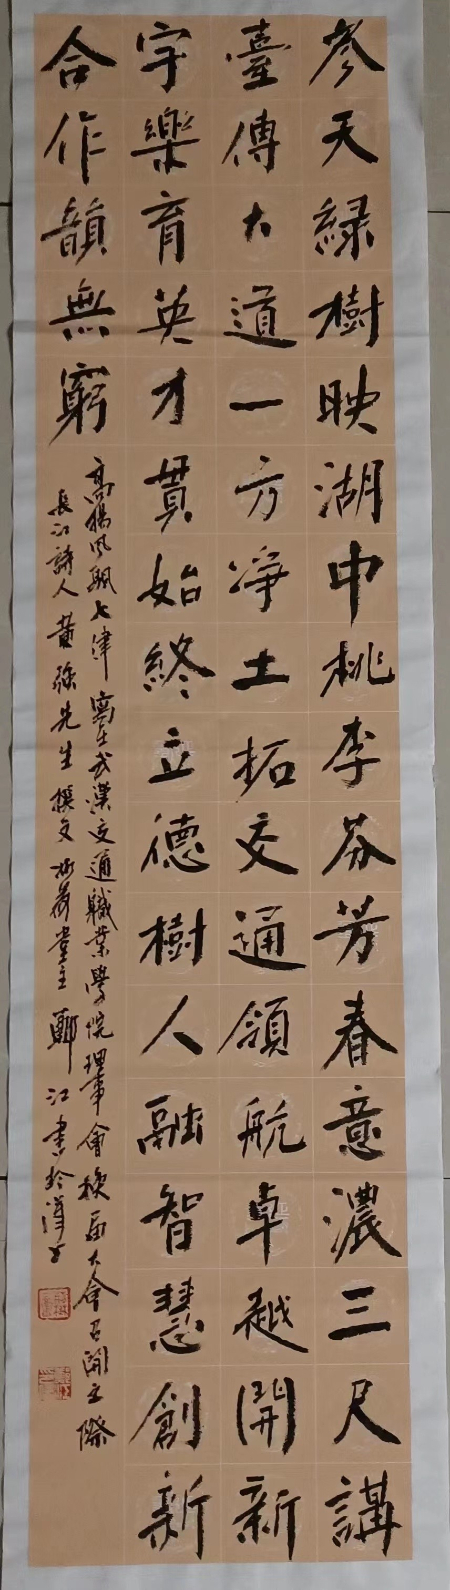 参天緑樹映湖中桃李芬芳春意濃三尺講
臺傳大道一方凈土拓交通領航卓越開新
宇樂育英才貫始終立德樹人融智慧創新
合作韻無窮
高揚風帆七律 寫在武漢交通職業學院理事會換届大會召開之際
長江詩人黄強先生撰文 荷堂主 鄭江書於漢上